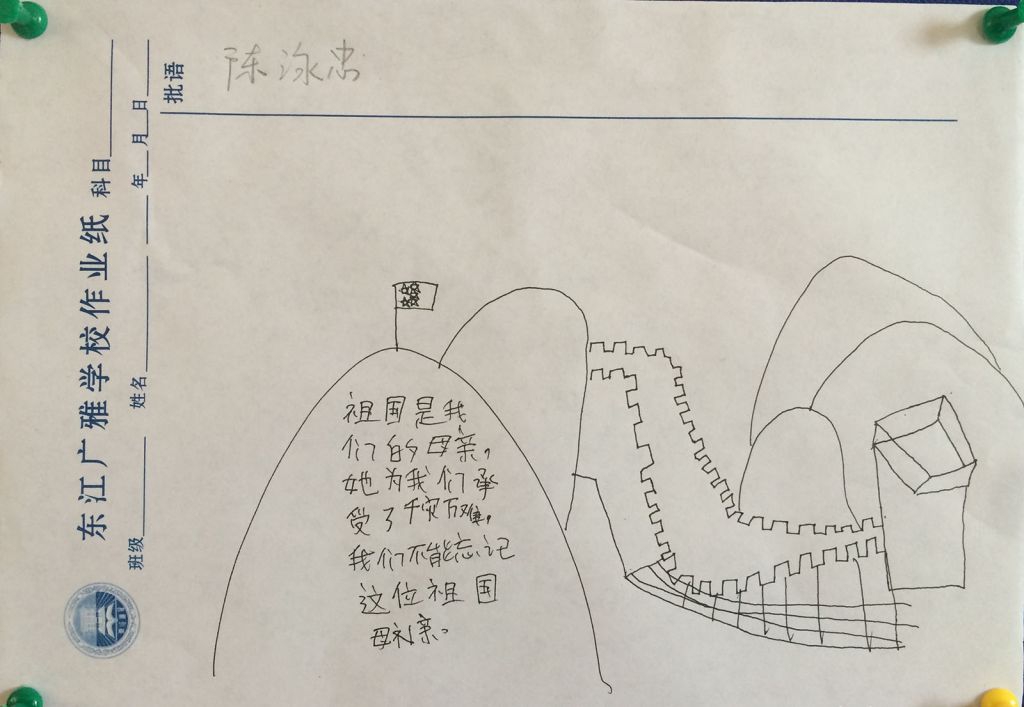 东江广雅学校作业纸
科目
班级 姓名 年 月 日
批语
陈泳忠
祖国是我
们的母亲，
她为我们承
受了千灾万难，
我们不能忘记
这位祖国
母亲。